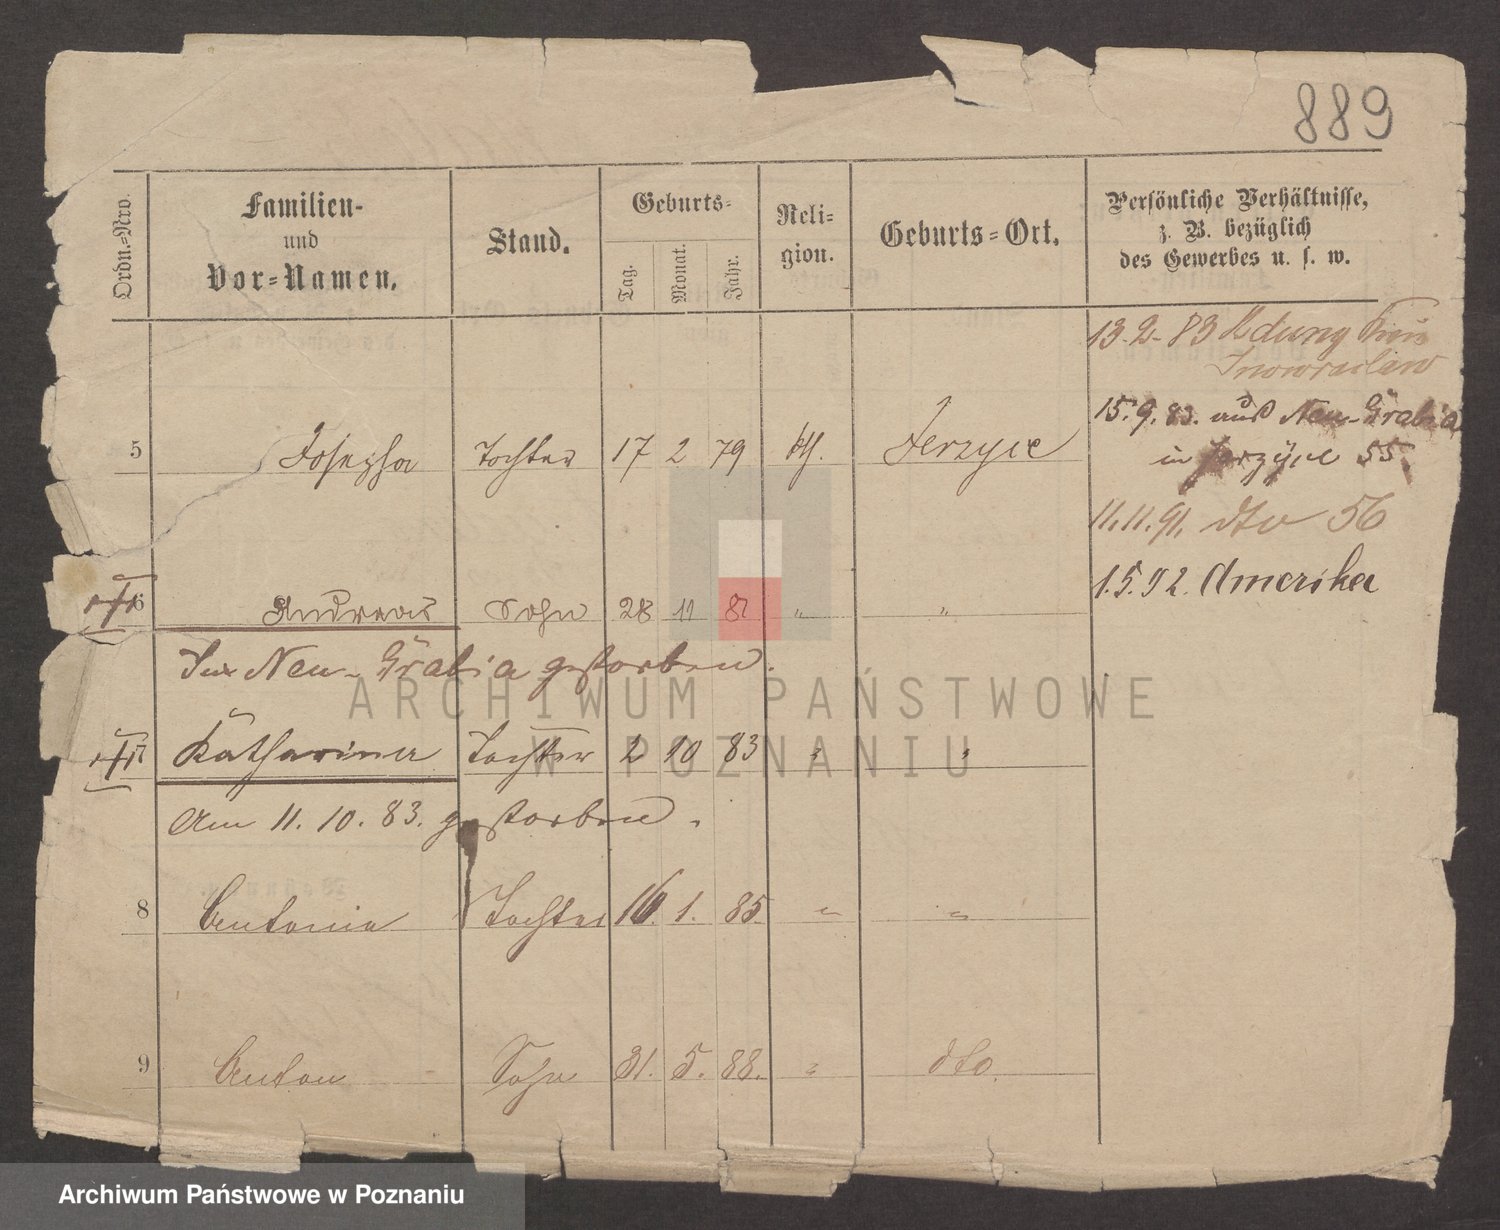 889
Ordn.-Nro.
Familien-
und
Vor-Namen.
Stand.
Geburts-
Tag.
Monat.
Jahr.
Reli-
gion.
Geburts-Ort.
Persönliche Verhältnisse,
z. B. bezüglich
des Gewerbes u. s. w.
13. 2. 83
Inowraclaw
15. 9. 83. aus Neu-Grabia
in Jerzyce 55.
5 Josepha Tochter 17 2 79 kth. Jerzyce
11. 11. 91. dto 56
1. 5. 92. Amerika
6 Andreas Sohn 28 11 81 " "
In Neu-Grabia gestorben.
7 Katharina Tochter 2 10 83 " "
Am 11. 10. 83. gestorben.
8 Antonie Tochter 16. 1. 85. " "
9 Anton Sohn 31. 5. 88. " dto.
ARCHIWUM PAŃSTWOWE
W POZNANIU
Archiwum Państwowe w Poznaniu